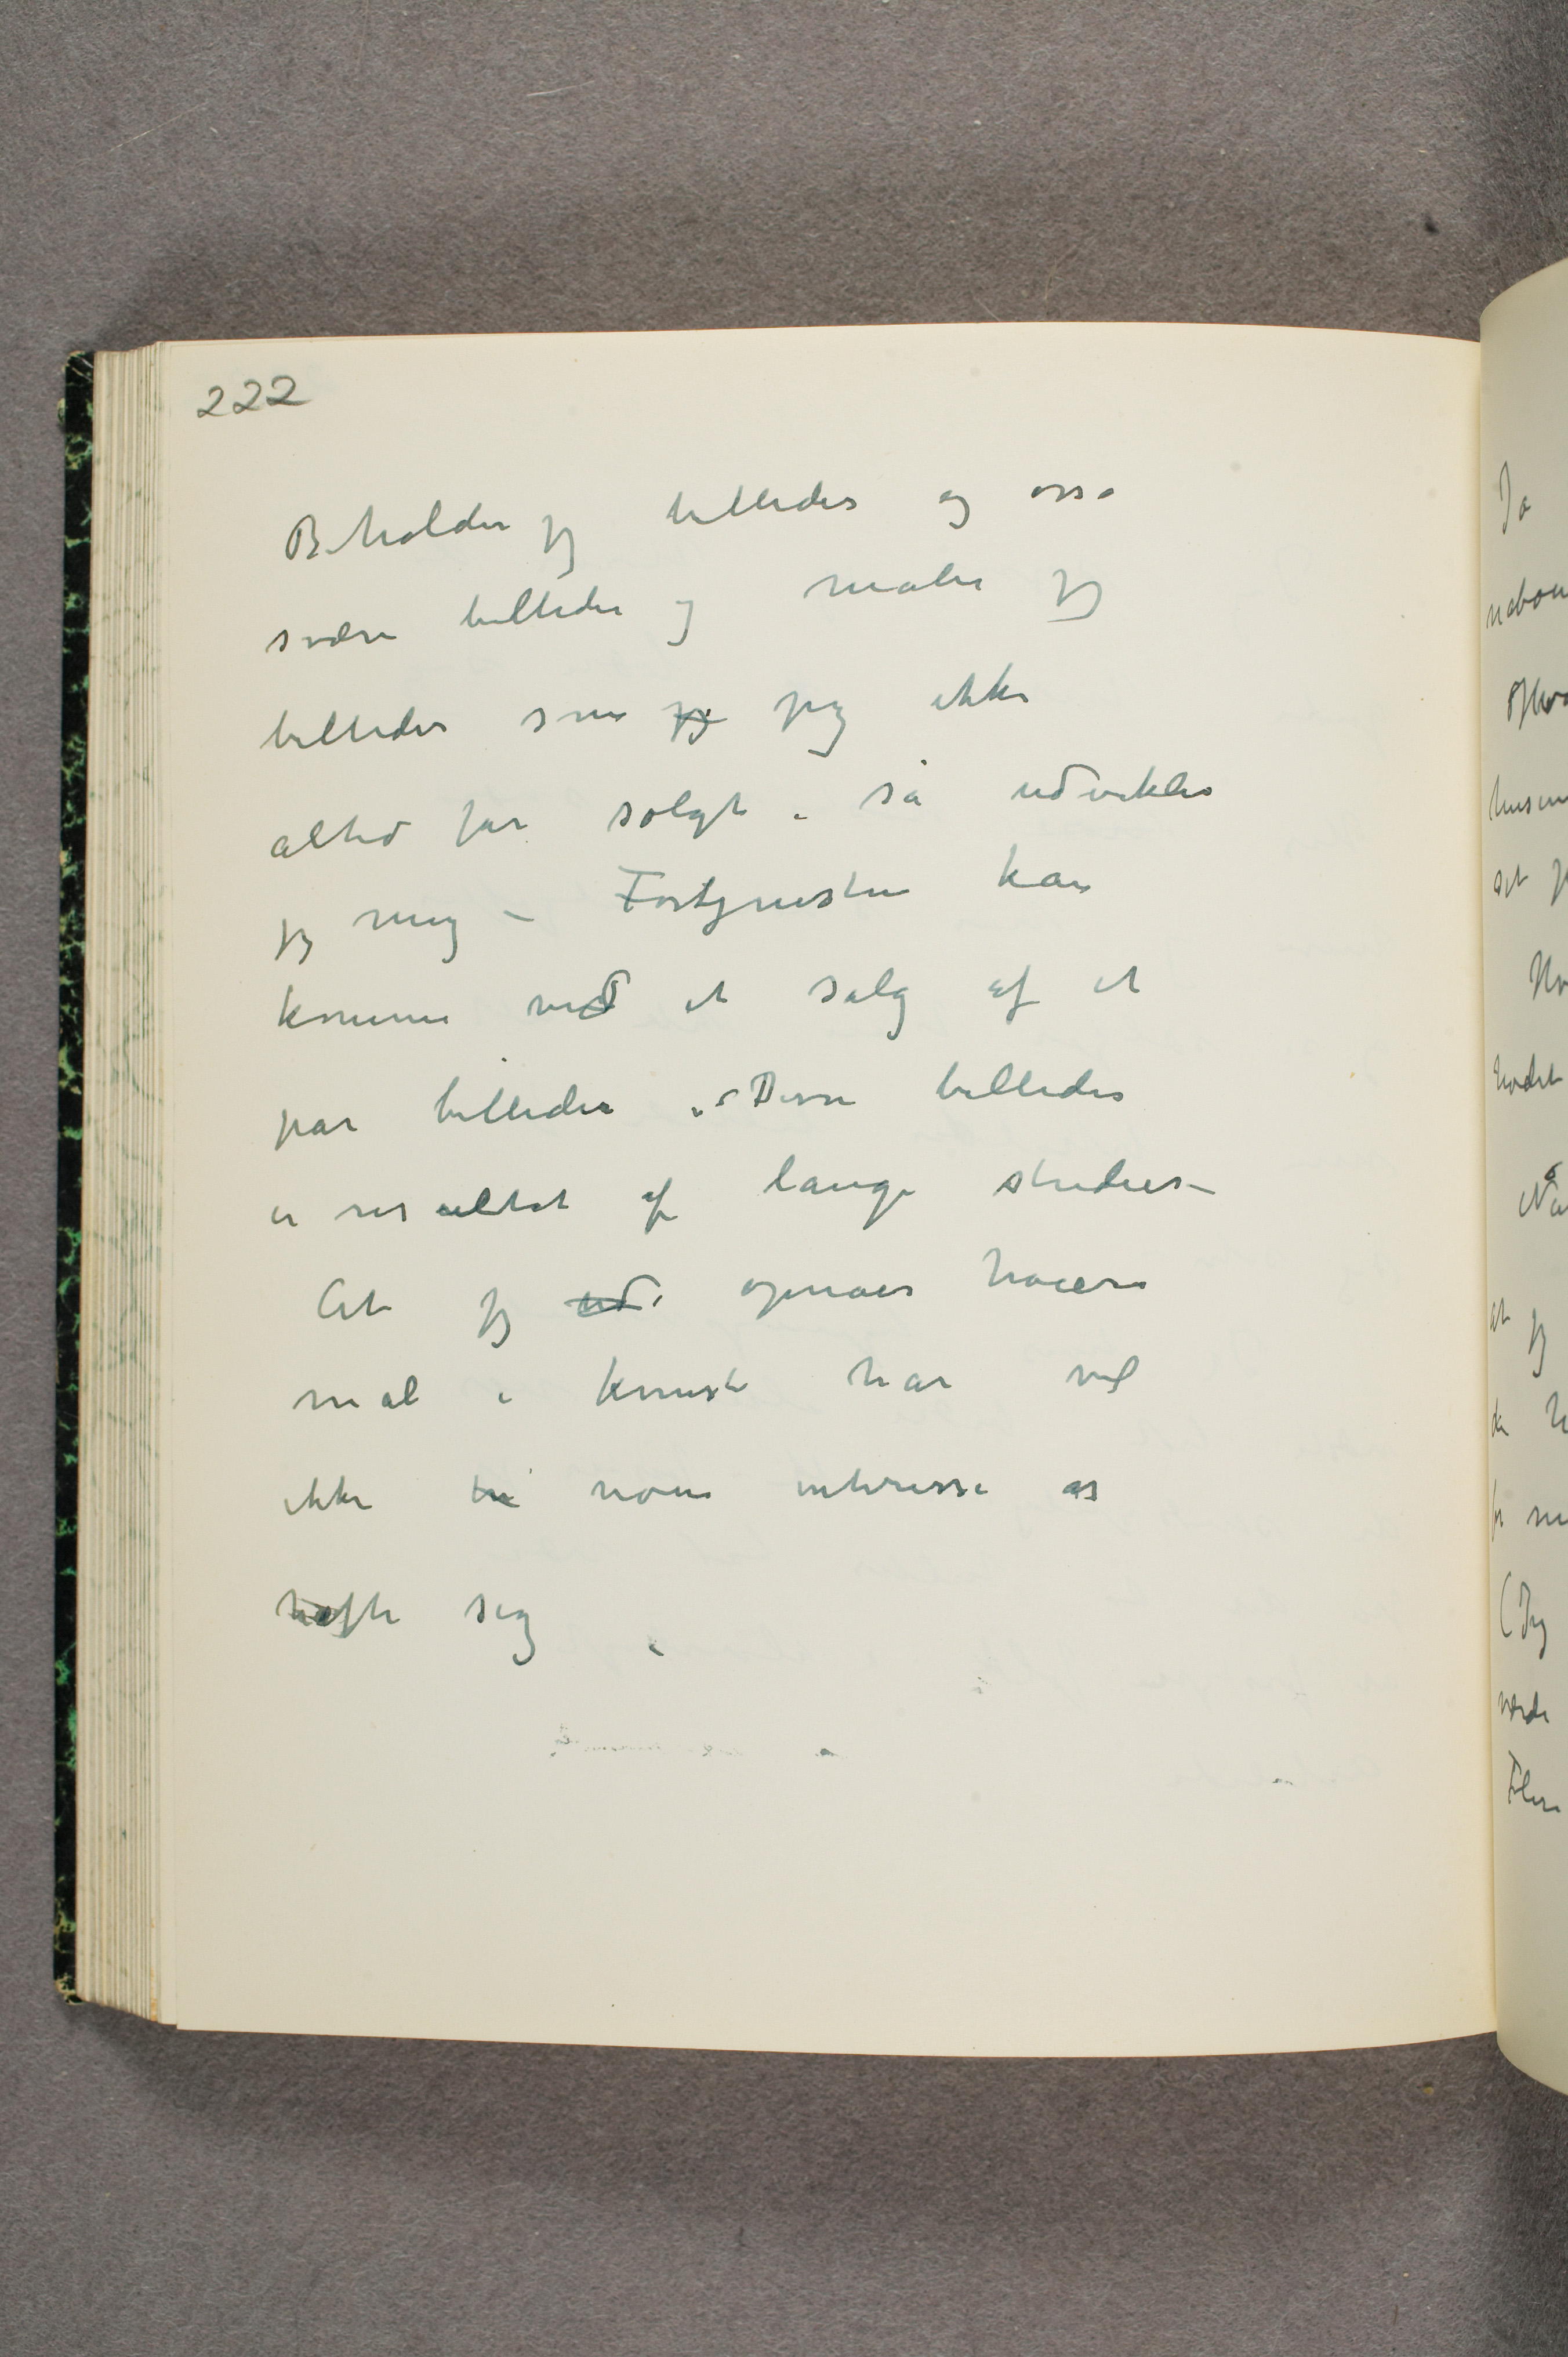 222
Beholder jeg billeder og osså
svære billeder og maler jeg
billeder som jeg jeg ikke
altid får solgt. så udvikler
jeg mig – Fortjenesten kan
komme ved et salg af et
par billeder. – Disse billeder
er resultat af lange studier –
At jeg ud opnaaer høiere
mål i kunst har vel
ikke nogen interesse as
hæfte sig
Ja